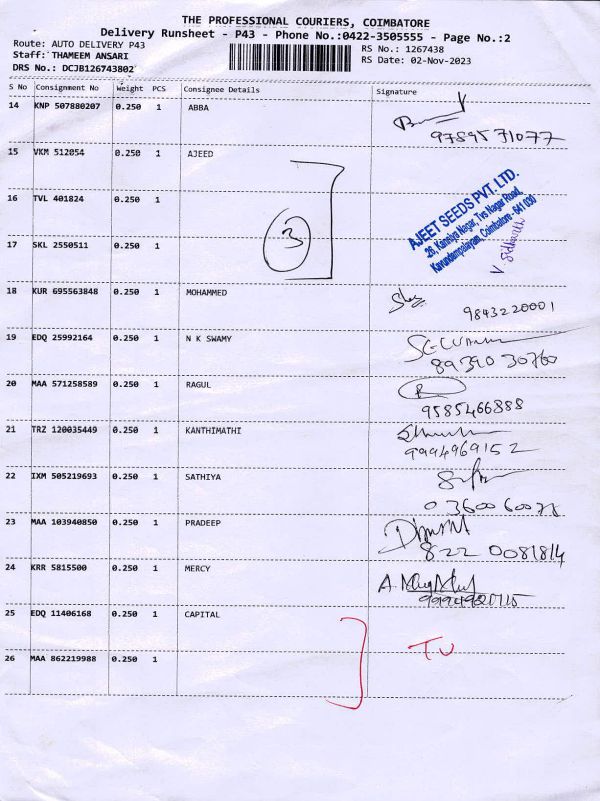 THE PROFESSIONAL COURIERS, COIMBATORE
Delivery Runsheet - P43 - Phone No.:0422-3505555 - Page No.:2
Route: AUTO DELIVERY P43
RS No.: 1267438
Staff: THAMEEM ANSARI
RS Date: 02-Nov-2023
DRS No.: DCJB126743802
S No Consignment No Weight PCS Consignee Details Signature
14 KNP 507880207 0.250 1 ABBA
9789571077
15 VKM 512054 0.250 1 AJEED
16 TVL 401824 0.250 1
3
AJEET SEEDS PVT. LTD.
26, Kanniya Nagar, Tvs Nagar Road,
Kavundampalayam, Coimbatore - 641 030
17 SKL 2550511 0.250 1
18 KUR 695563848 0.250 1 MOHAMMED
9843220001
19 EDQ 25992164 0.250 1 N K SWAMY
89390 30760
20 MAA 571258589 0.250 1 RAGUL
9585466888
21 TRZ 120035449 0.250 1 KANTHIMATHI
9994969152
22 IXM 505219693 0.250 1 SATHIYA
23 MAA 103940850 0.250 1 PRADEEP
822 0081814
24 KRR 5815500 0.250 1 MERCY
25 EDQ 11406168 0.250 1 CAPITAL
26 MAA 862219988 0.250 1